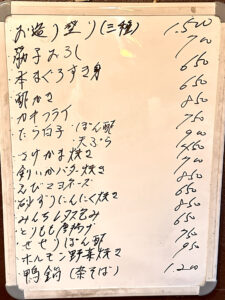 お造り盛り(三種) 1.500
筋子おろし 700
本まぐろすき身 650
酢がき 650
カキフライ 850
たら白子・ぽん酢 750
天ぷら 900
さけかま焼き 650
釣いかバター焼き 700
えびマヨネーズ 850
砂ずりにんにく焼き 650
みんちレタス包み 850
とりもも唐揚げ 650
せせりぽん酢 750
ホルモン野菜焼き 950
鴨鍋(茶そば) 1.200